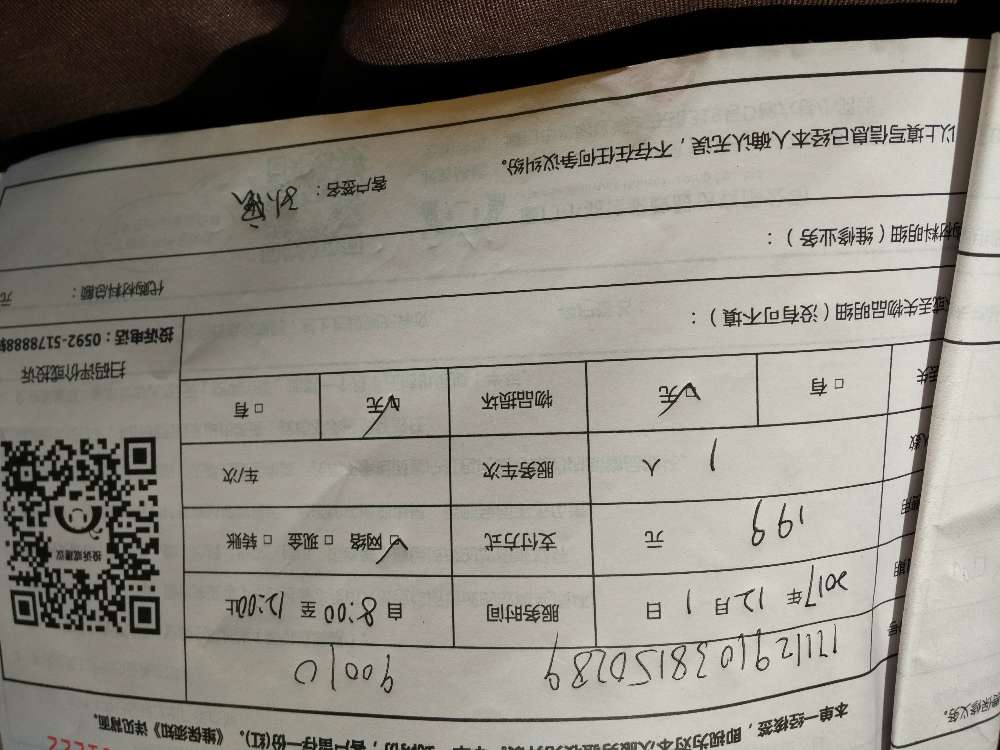 本单一经核签，即视为对本次服务验收
客户留存一份(红)。《维保须知》详见背面。
17112910381150289
90010
2017年 12月 1 日
服务时间
自 8:00 至 12:00止
199 元
支付方式
☑ 网络 □ 现金 □ 转账
1 人
服务车次
车/次
□ 有
☑ 无
物品损坏
☑ 无
□ 有
投诉或建议
扫码评价或投诉
投诉电话：0592-5178888转
或丢失物品明细（没有可不填）：
代购材料总额：
元
购材料明细（维修业务）：
以上填写信息已经本人确认无误，不存在任何争议纠纷。
客户签名：
保修义务。